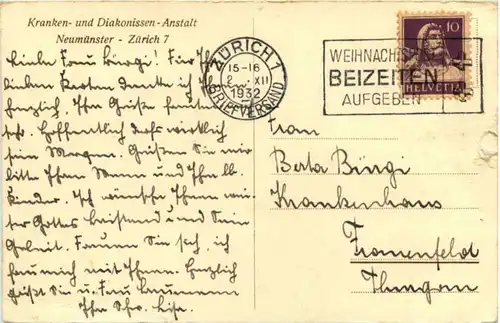 Kranken- und Diakonissen-Anstalt
Neumünster - Zürich 7
Liebe Frau Bürgi! Für Ihr
lieben Karten danke ich Ihnen
herzlich, Ihre Grüße freuten
sehr. Hoffentlich darf's wirklich
sein Morgen. Grüßen Sie mir
bitte Ihren Mann und Ihre lb.
Kinder. Ich wünsche Ihnen wei-
ter Gottes Beistand und Sein
Geleit. Freuen Sie sich, ich
freue mich mit Ihnen. Herzlich
grüßt Sie u. Frau
Ihre Schw. Lise.
ZÜRICH 1
15-16
2 XII
1932
BRIEFVERSAND
WEIHNACHTS
BEIZEITEN
AUFGEBEN
10
HELVETIA
Frau
Berta Bürgi
Krankenhaus
Frauenfeld
Thurgau